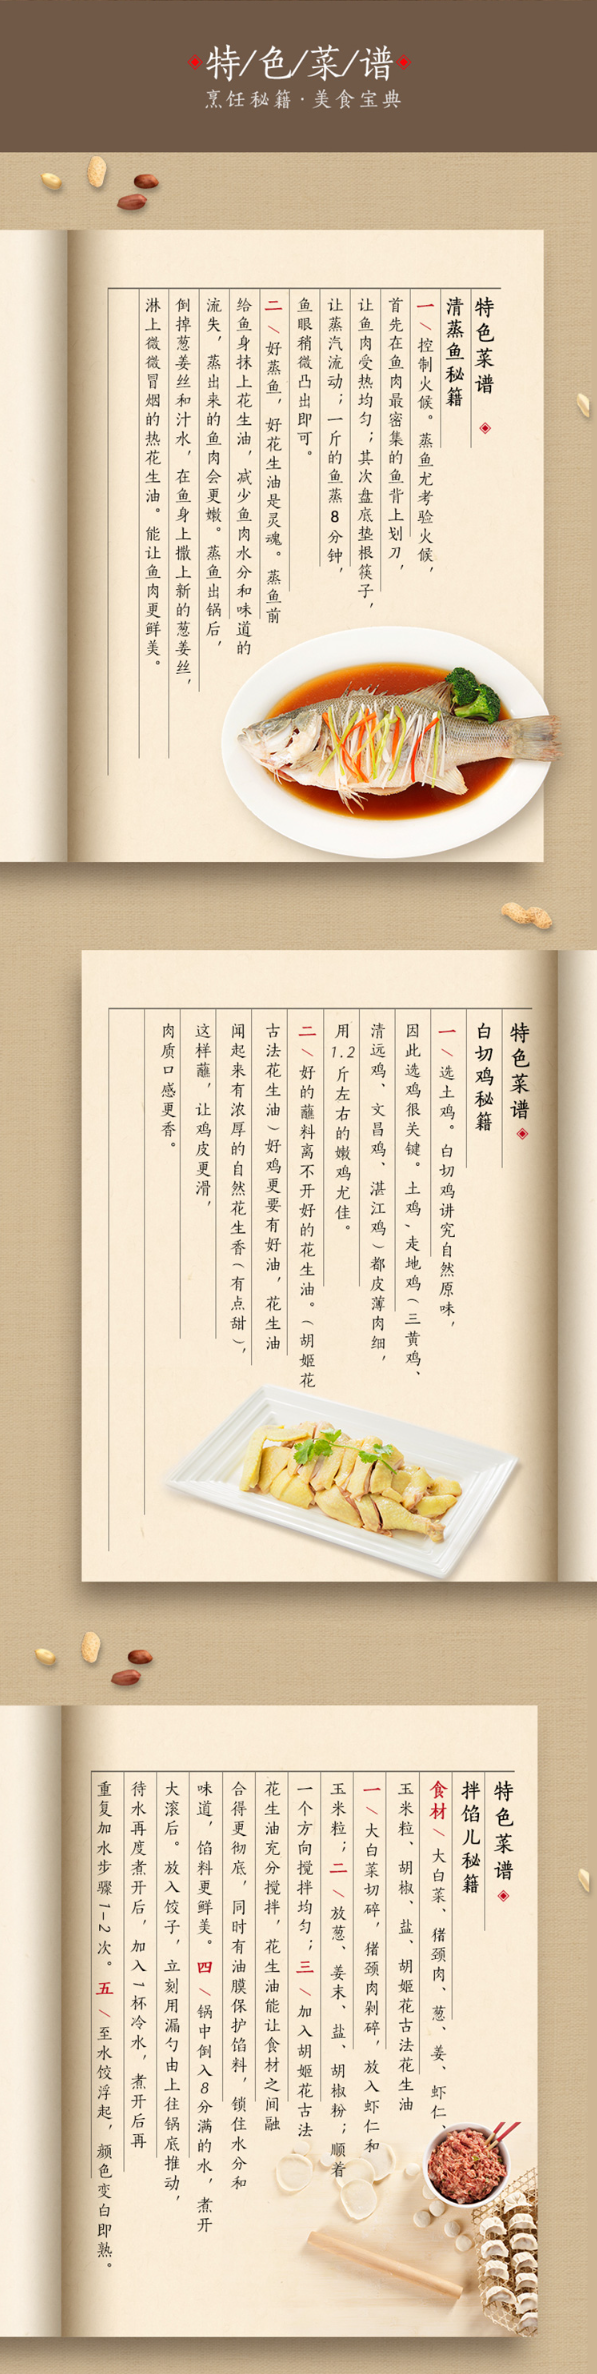 特/色/菜/谱
烹饪秘籍·美食宝典
特色菜谱
清蒸鱼秘籍
一\控制火候。蒸鱼尤考验火候，
首先在鱼肉最密集的鱼背上划刀，
让鱼肉受热均匀；其次盘底垫根筷子，
让蒸汽流动；一斤的鱼蒸8分钟，
鱼眼稍微凸出即可。
二\好蒸鱼，好花生油是灵魂。蒸鱼前
给鱼身抹上花生油，减少鱼肉水分和味道的
流失，蒸出来的鱼肉会更嫩。蒸鱼出锅后，
倒掉葱姜丝和汁水，在鱼身上撒上新的葱姜丝，
淋上微微冒烟的热花生油。能让鱼肉更鲜美。
特色菜谱
白切鸡秘籍
一\选土鸡。白切鸡讲究自然原味，
因此选鸡很关键。土鸡、走地鸡（三黄鸡、
清远鸡、文昌鸡、湛江鸡）都皮薄肉细，
用1.2斤左右的嫩鸡尤佳。
二\好的蘸料离不开好的花生油。（胡姬花
古法花生油）好鸡更要有好油，花生油
闻起来有浓厚的自然花生香（有点甜），
这样蘸，让鸡皮更滑，
肉质口感更香。
特色菜谱
拌馅儿秘籍
食材\大白菜、猪颈肉、葱、姜、虾仁、
玉米粒、胡椒、盐、胡姬花古法花生油
一\大白菜切碎，猪颈肉剁碎，放入虾仁和
玉米粒；二\放葱、姜末、盐、胡椒粉；顺着
一个方向搅拌均匀；三\加入胡姬花古法
花生油充分搅拌，花生油能让食材之间融
合得更彻底，同时有油膜保护馅料，锁住水分和
味道，馅料更鲜美。四\锅中倒入8分满的水，煮开
大滚后。放入饺子，立刻用漏勺由上往锅底推动，
待水再度煮开后，加入1杯冷水，煮开后再
重复加水步骤1-2次。五\至水饺浮起，颜色变白即熟。